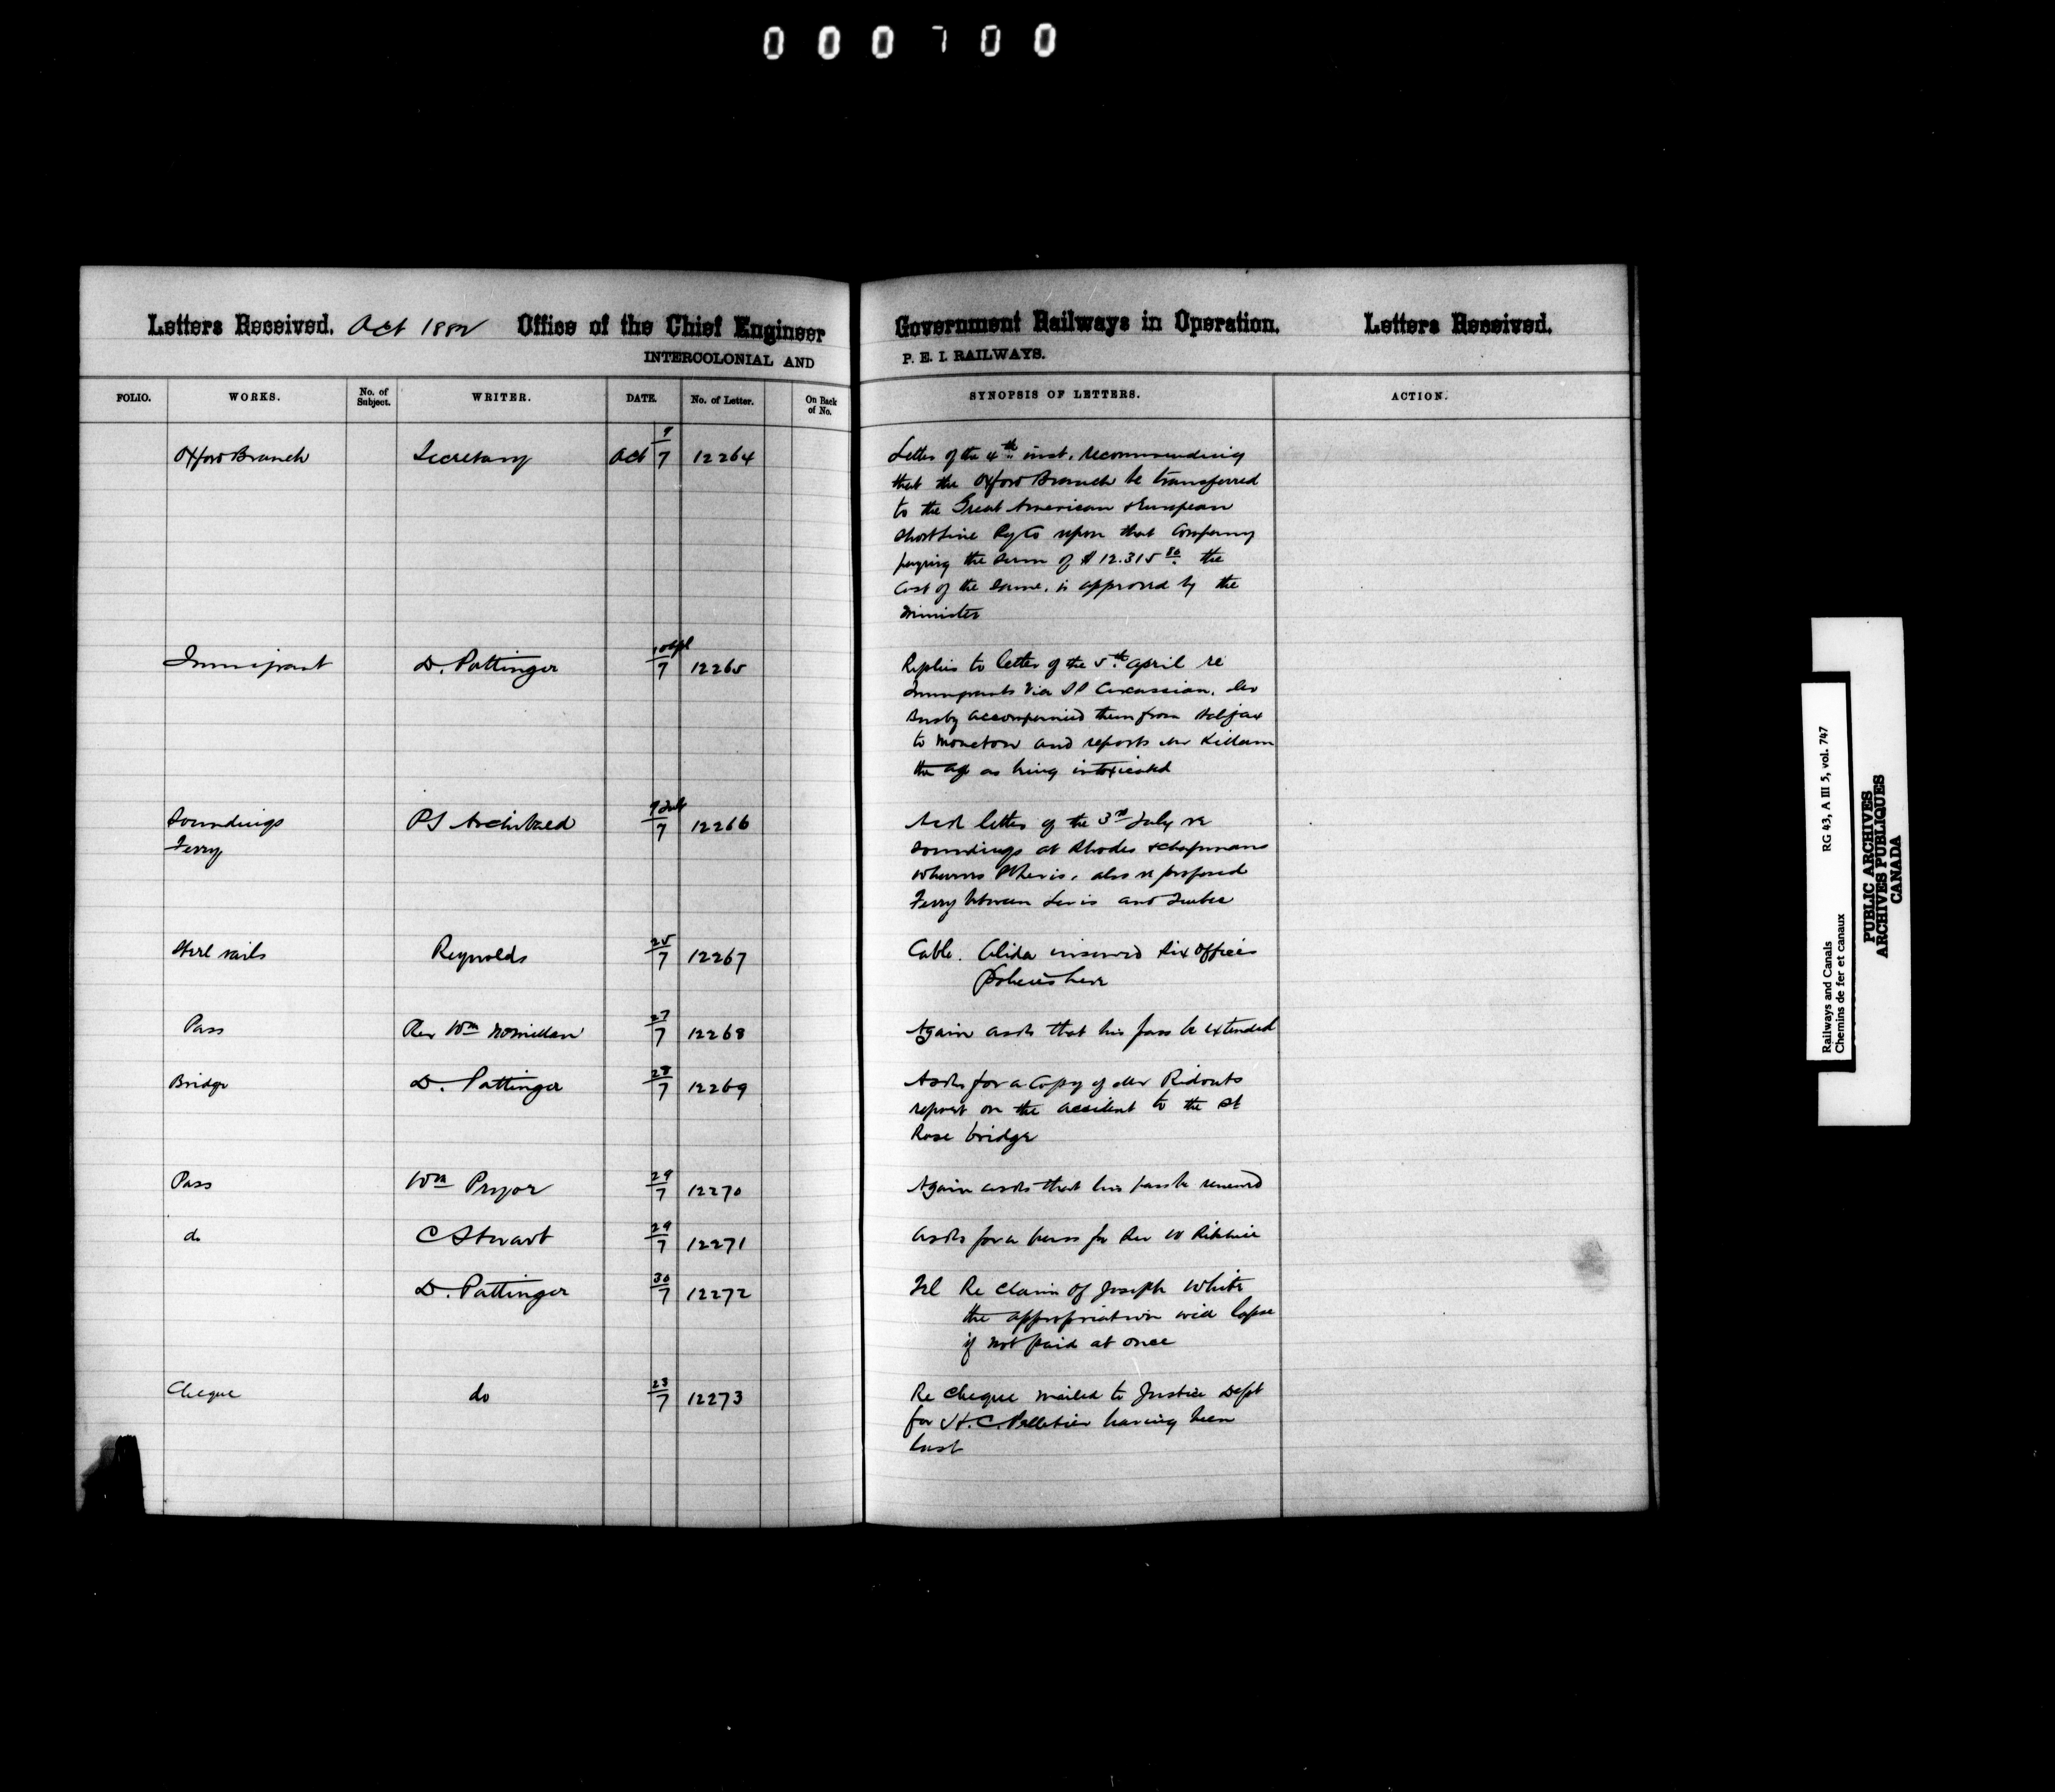 000700
Letters Received. Oct 1882 Office of the Chief Engineer
INTERCOLONIAL AND
Government Railways in Operation. Letters Received.
P. E. I. RAILWAYS.
FOLIO. WORKS. No. of Subject. WRITER. DATE. No. of Letter. On Back of No. SYNOPSIS OF LETTERS. ACTION.
Oxford Branch Secretary Oct 9/7 12264 Letter of the 4th inst. recommending
that the Oxford Branch be transferred
to the Great American & European
Short Line Ry Co upon that Company
paying the sum of $12.315 80 the
Cost of the same, is approved by the
Minister
Immigrant D. Pottinger 10 Apl/7 12265 Replies to letter of the 5th April re
Immigrants via SS Circassian. Mr
Busby accompanied them from Halifax
to Moncton and reports Mr Killam
the agt as being intoxicated
Soundings PS Archibald 7 July/7 12266 Ack letter of the 3rd July re
Ferry soundings at Rhodes & Chapmans
wharves also re proposed
Ferry between Levis and Quebec
Steel rails Reynolds 25/7 12267 Cable. Alida insured six offices
Policies here
Pass Rev Wm McMillan 27/7 12268 Again asks that his pass be extended
Bridge D. Pottinger 28/7 12269 Asks for a Copy of Mr Ridouts
report on the accident to the St
Rose bridge
Pass Wm Pryor 29/7 12270 Again asks that his pass be renewed
do C Stewart 29/7 12271 asks for a pass for Rev W Ritchie
D. Pottinger 30/7 12272 Tel Re claim of Joseph White
the appropriation will lapse
if not paid at once
Cheque do 23/7 12273 Re cheque mailed to Justice Dept
for H. C. Pelletier having been
lost
Railways and Canals RG 43, A III 5, vol. 747
Chemins de fer et canaux
PUBLIC ARCHIVES
ARCHIVES PUBLIQUES
CANADA